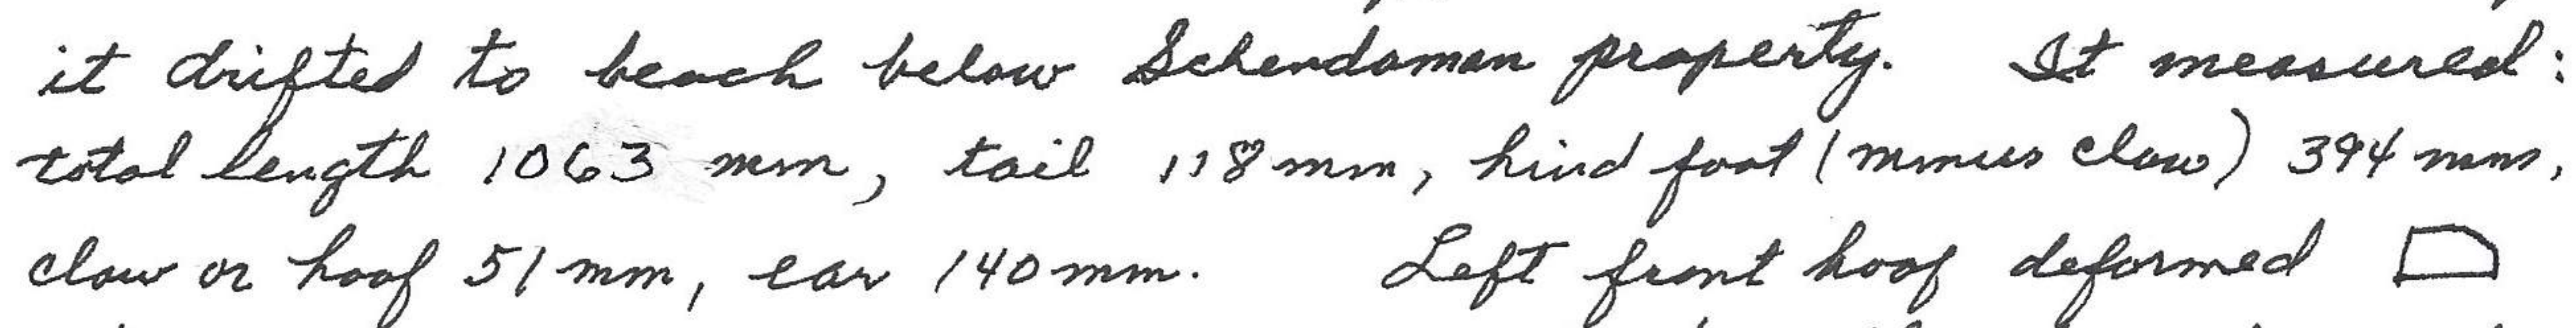 it drifted to beach below Schendaman property. It measured:
total length 1063 mm, tail 118 mm, hind foot (minus claw) 394 mm,
claw or hoof 51 mm, ear 140 mm. Left front hoof deformed